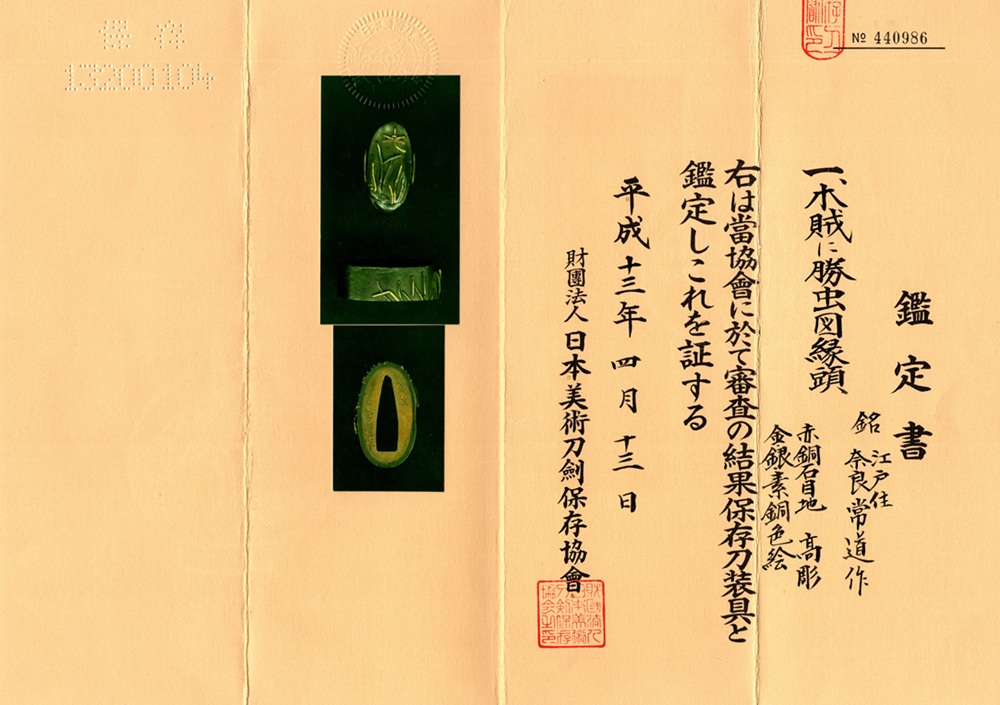 № 440986
鑑定書
一、木賊に勝虫図縁頭
銘 江戸住
奈良常道作
赤銅石目地 高彫
金銀素銅色絵
右は當協會に於て審査の結果保存刀装具と
鑑定しこれを証する
平成十三年四月十三日
財團法人 日本美術刀劍保存協會
保存
13200104